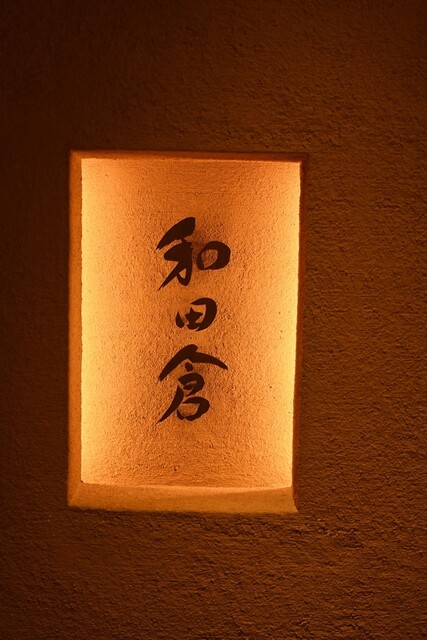 和田倉